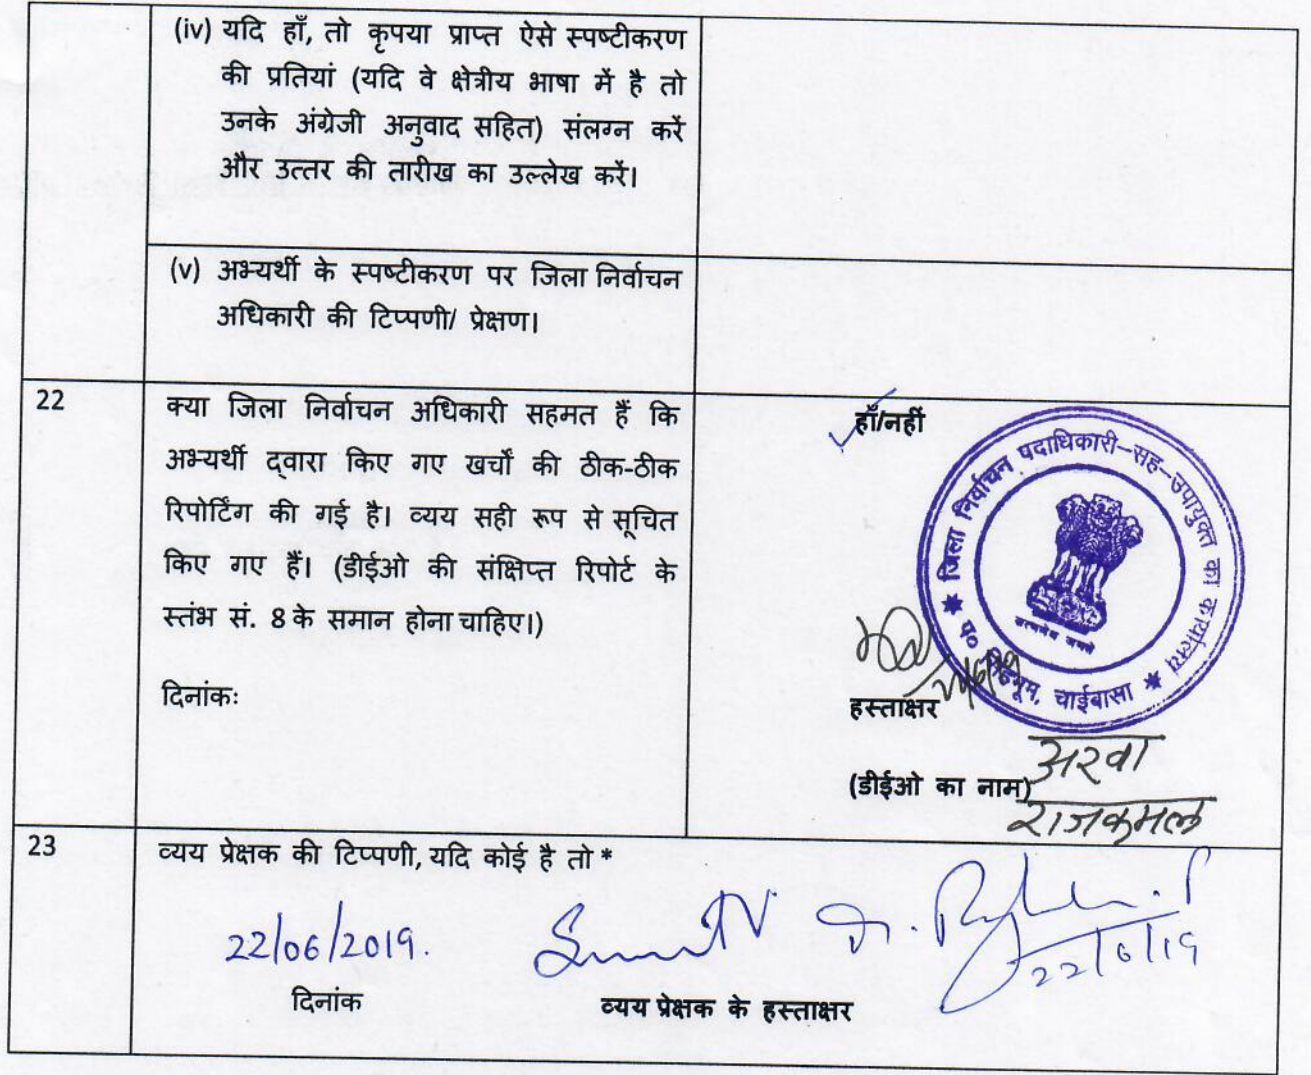 (iv) यदि हाँ, तो कृपया प्राप्त ऐसे स्पष्टीकरण
की प्रतियां (यदि वे क्षेत्रीय भाषा में है तो
उनके अंग्रेजी अनुवाद सहित) संलग्न करें
और उत्तर की तारीख का उल्लेख करें।
(v) अभ्यर्थी के स्पष्टीकरण पर जिला निर्वाचन
अधिकारी की टिप्पणी/ प्रेक्षण।
22
क्या जिला निर्वाचन अधिकारी सहमत हैं कि
अभ्यर्थी द्वारा किए गए खर्चों की ठीक-ठीक
रिपोर्टिंग की गई है। व्यय सही रूप से सूचित
किए गए हैं। (डीईओ की संक्षिप्त रिपोर्ट के
स्तंभ सं. 8 के समान होना चाहिए।)
दिनांकः
हाँ/नहीं
जिला निर्वाचन पदाधिकारी-सह-उपायुक्त का कार्यालय
प० सिंहभूम, चाईबासा
सत्यमेव जयते
हस्ताक्षर
(डीईओ का नाम)
अरवा
राजकमल
23
व्यय प्रेक्षक की टिप्पणी, यदि कोई है तो *
22/06/2019.
22/6/19
दिनांक
व्यय प्रेक्षक के हस्ताक्षर